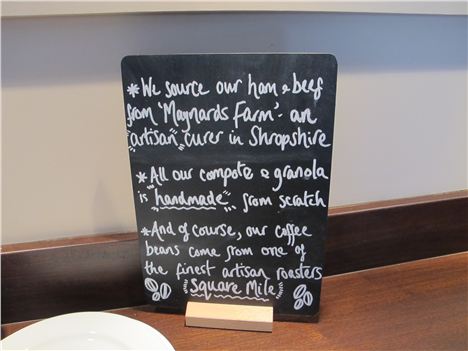 * We source our ham & beef
from 'Maynards Farm' - an
"artisan" curer in Shropshire
* All our compote & granola
is "handmade" from scratch
* And of course, our coffee
beans come from one of
the finest artisan roasters
"Square Mile"